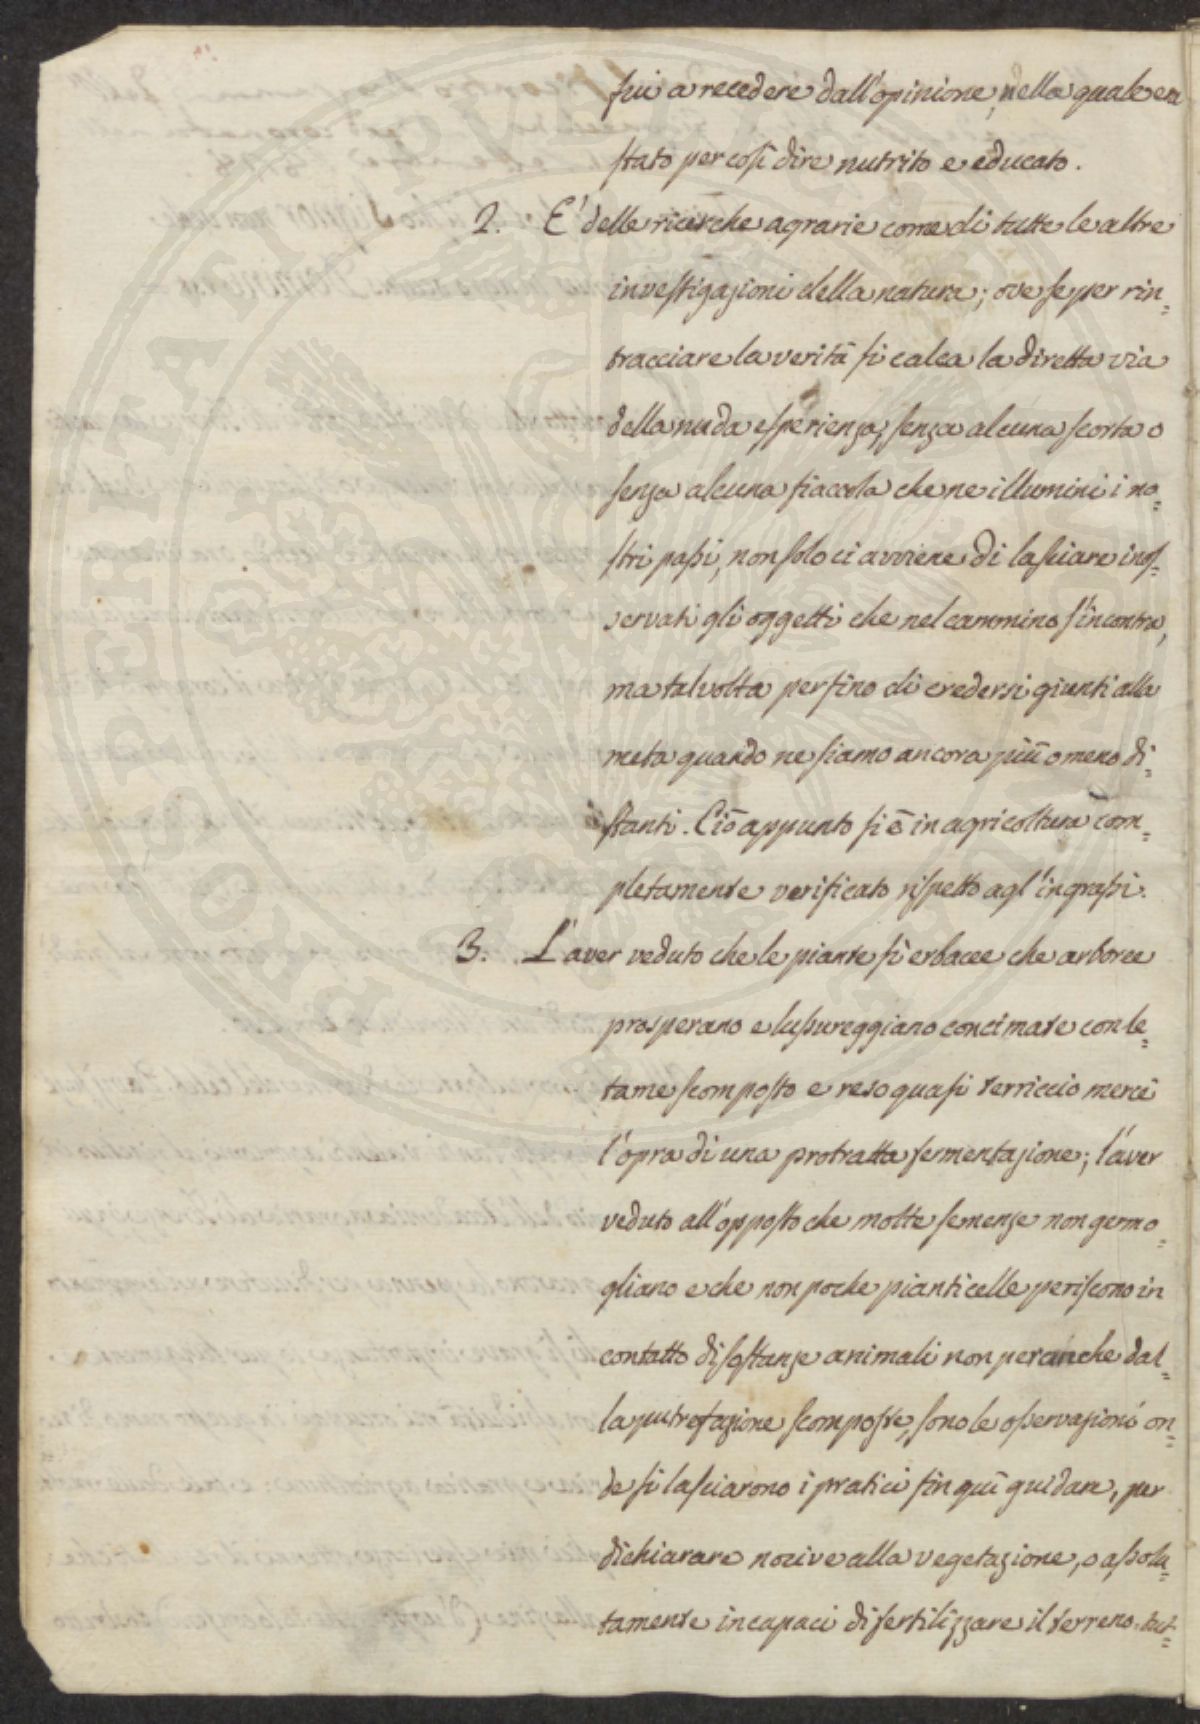 fui a recedere dall'opinione, nella quale era
stato per così dire nutrito e educato.
2. E' delle ricerche agrarie come di tutte le altre
investigazioni della natura; ove se per rin=
tracciare la verità si calca la diretta via
della nuda esperienza, senza alcuna scorta o
senza alcuna fiaccola che ne illumini i no=
stri passi, non solo ci avviene di lasciare inos=
servati gli oggetti che nel cammino s'incontra,
ma talvolta perfino di credersi giunti alla
meta quando ne siamo ancora più o meno di=
stanti. Ciò appunto si è in agricoltura com=
pletamente verificato rispetto agl'ingrassi.
3. L'aver veduto che le piante sì erbacee che arboree
prosperano e lussureggiano concimate con le=
tame scomposto e reso quasi terriccio mercè
l'opra di una protratta fermentazione; l'aver
veduto all'opposto che molte semenze non germo=
gliano e che non poche pianticelle periscono in
contatto di sostanze animali non per anche dal=
la putrefazione scomposte, sono le osservazioni on=
de si lasciarono i pratici fin quì guidare, per
dichiarare nocive alla vegetazione, o assolu=
tamente incapaci di fertilizzare il terreno tut=
PROSPERITATI PUBLICAE